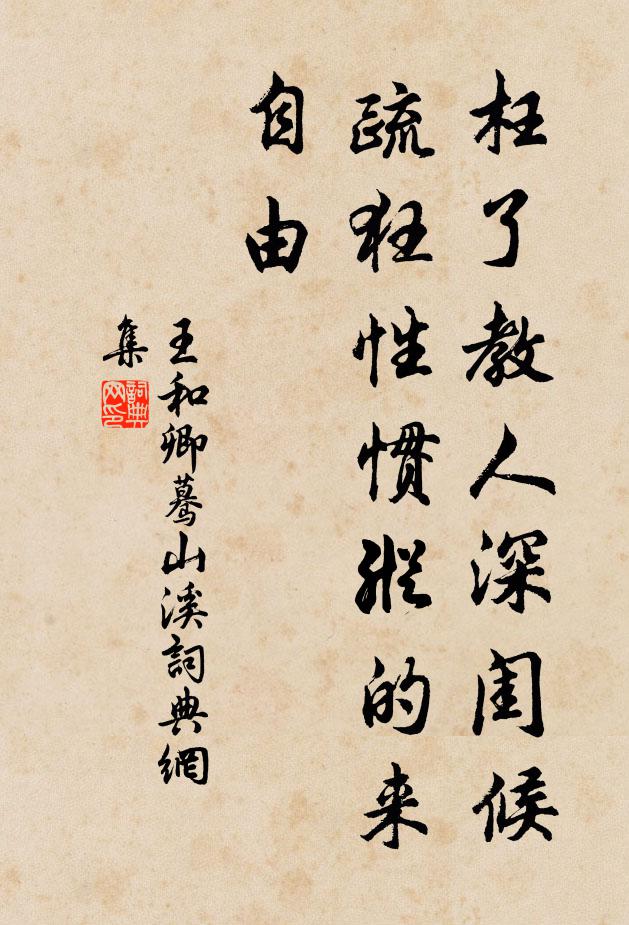 枉了教人深闺候
疏狂性惯縱的来
自由
王和卿蓦山溪詞典網
集
詞典网印